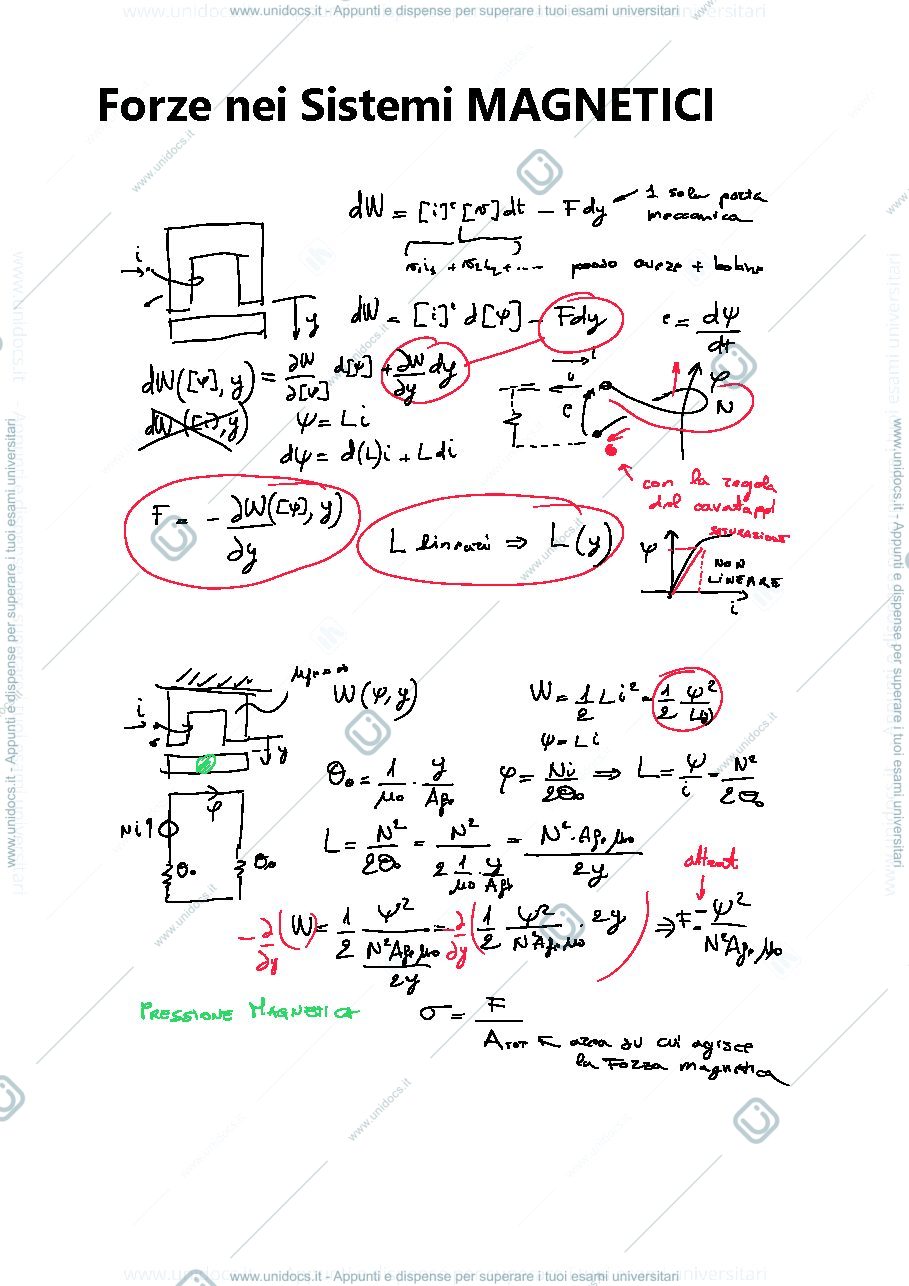 www.unidocs.it - Appunti e dispense per superare i tuoi esami universitari
Forze nei Sistemi MAGNETICI
dW = [i]ᵗ [v] dt - F dy
1 sola porta
meccanica
v₁i₁ + v₂i₂ + ....
posso avere + bobine
i
y
dW = [i]ᵗ d[ψ] - Fdy
e = dψ/dt
dW([ψ], y) = ∂W/∂[ψ] d[ψ] + ∂W/∂y dy
i
v
e
φ
N
dW([i], y)
ψ = Li
dψ = d(L)i + L di
con la regola
del cavatappi
F = - ∂W([ψ], y)/∂y
L lineari ⇒ L(y)
ψ
SATURAZIONE
NON
LINEARE
i
μfe = ∞
W(ψ, y)
W = 1/2 L i² = 1/2 ψ²/L(y)
ψ = Li
i
y
θ₀ = 1/μ₀ · y/Afe
φ = Ni/2θ₀ ⇒ L = ψ/i = N²/2θ₀
φ
Ni
θ₀
θ₀
L = N²/2θ₀ = N²/(2 1/μ₀ · y/Afe) = N²·Afe μ₀/2y
attrat
-∂/∂y (W = 1/2 ψ²/(N²Afe μ₀/2y) = ∂/∂y (1/2 ψ²/(N²Afe μ₀) · 2y) ⇒ F = -ψ²/(N²Afe μ₀)
PRESSIONE MAGNETICA
σ = F/ATOT
← area su cui agisce
la Forza magnetica
www.unidocs.it - Appunti e dispense per superare i tuoi esami universitari